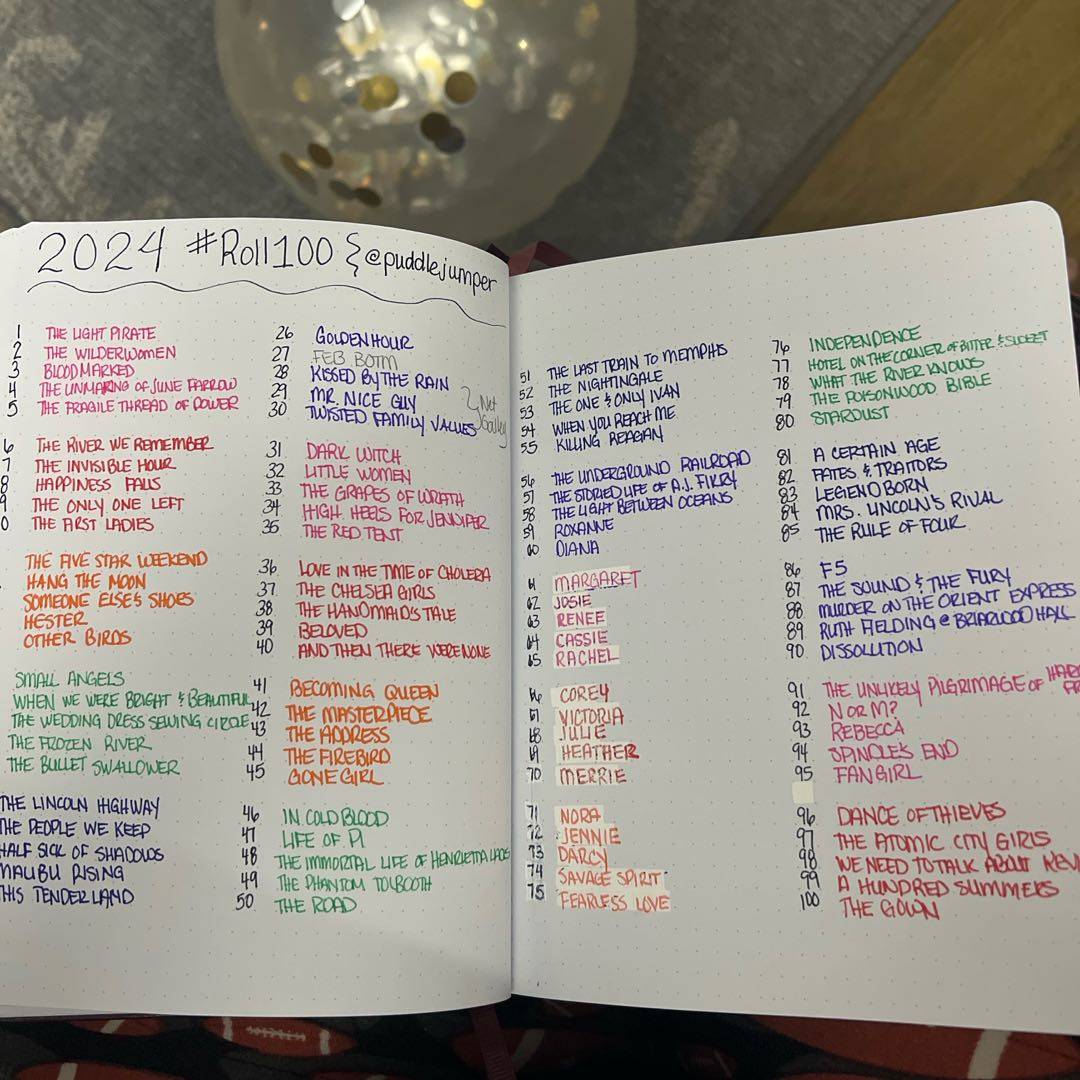 2024 #Roll100 @puddlejumper
1 THE LIGHT PIRATE
2 THE WILDERWOMEN
3 BLOODMARKED
4 THE UNMAKING OF JUNE FARROW
5 THE FRAGILE THREAD OF POWER
6 THE RIVER WE REMEMBER
7 THE INVISIBLE HOUR
8 HAPPINESS FALLS
9 THE ONLY ONE LEFT
0 THE FIRST LADIES
THE FIVE STAR WEEKEND
HANG THE MOON
SOMEONE ELSE'S SHOES
HESTER
OTHER BIRDS
SMALL ANGELS
WHEN WE WERE BRIGHT & BEAUTIFUL
THE WEDDING DRESS SEWING CIRCLE
THE FROZEN RIVER
THE BULLET SWALLOWER
THE LINCOLN HIGHWAY
THE PEOPLE WE KEEP
HALF SICK OF SHADOWS
MALIBU RISING
THIS TENDER LAND
26 GOLDEN HOUR
27 FEB BOTM
28 KISSED BY THE RAIN
29 MR. NICE GUY
30 TWISTED FAMILY VALUES
Net
Galley
31 DARK WITCH
32 LITTLE WOMEN
33 THE GRAPES OF WRATH
34 HIGH HEELS FOR JENNIFER
35 THE RED TENT
36 LOVE IN THE TIME OF CHOLERA
37 THE CHELSEA GIRLS
38 THE HANDMAID'S TALE
39 BELOVED
40 AND THEN THERE WERE NONE
41 BECOMING QUEEN
42 THE MASTERPIECE
43 THE ADDRESS
44 THE FIREBIRD
45 GONE GIRL
46 IN COLD BLOOD
47 LIFE OF PI
48 THE IMMORTAL LIFE OF HENRIETTA LACKS
49 THE PHANTOM TOLBOOTH
50 THE ROAD
51 THE LAST TRAIN TO MEMPHIS
52 THE NIGHTINGALE
53 THE ONE & ONLY IVAN
54 WHEN YOU REACH ME
55 KILLING REAGAN
56 THE UNDERGROUND RAILROAD
57 THE STORIED LIFE OF A.J. FIKRY
58 THE LIGHT BETWEEN OCEANS
59 ROXANNE
60 DIANA
61 MARGARET
62 JOSIE
63 RENEE
64 CASSIE
65 RACHEL
66 COREY
67 VICTORIA
68 JULIE
69 HEATHER
70 MERRIE
71 NORA
72 JENNIE
73 DARCY
74 SAVAGE SPIRIT
75 FEARLESS LOVE
76 INDEPENDENCE
77 HOTEL ON THE CORNER OF BITTER & SWEET
78 WHAT THE RIVER KNOWS
79 THE POISONWOOD BIBLE
80 STARDUST
81 A CERTAIN AGE
82 FATES & TRAITORS
83 LEGENDBORN
84 MRS. LINCOLN'S RIVAL
85 THE RULE OF FOUR
86 F5
87 THE SOUND & THE FURY
88 MURDER ON THE ORIENT EXPRESS
89 RUTH FIELDING @ BRIARWOOD HALL
90 DISSOLUTION
91 THE UNLIKELY PILGRIMAGE OF
92 N OR M?
93 REBECCA
94 SPINDLE'S END
95 FANGIRL
96 DANCE OF THIEVES
97 THE ATOMIC CITY GIRLS
98 WE NEED TO TALK ABOUT KEV
99 A HUNDRED SUMMERS
100 THE GOWN